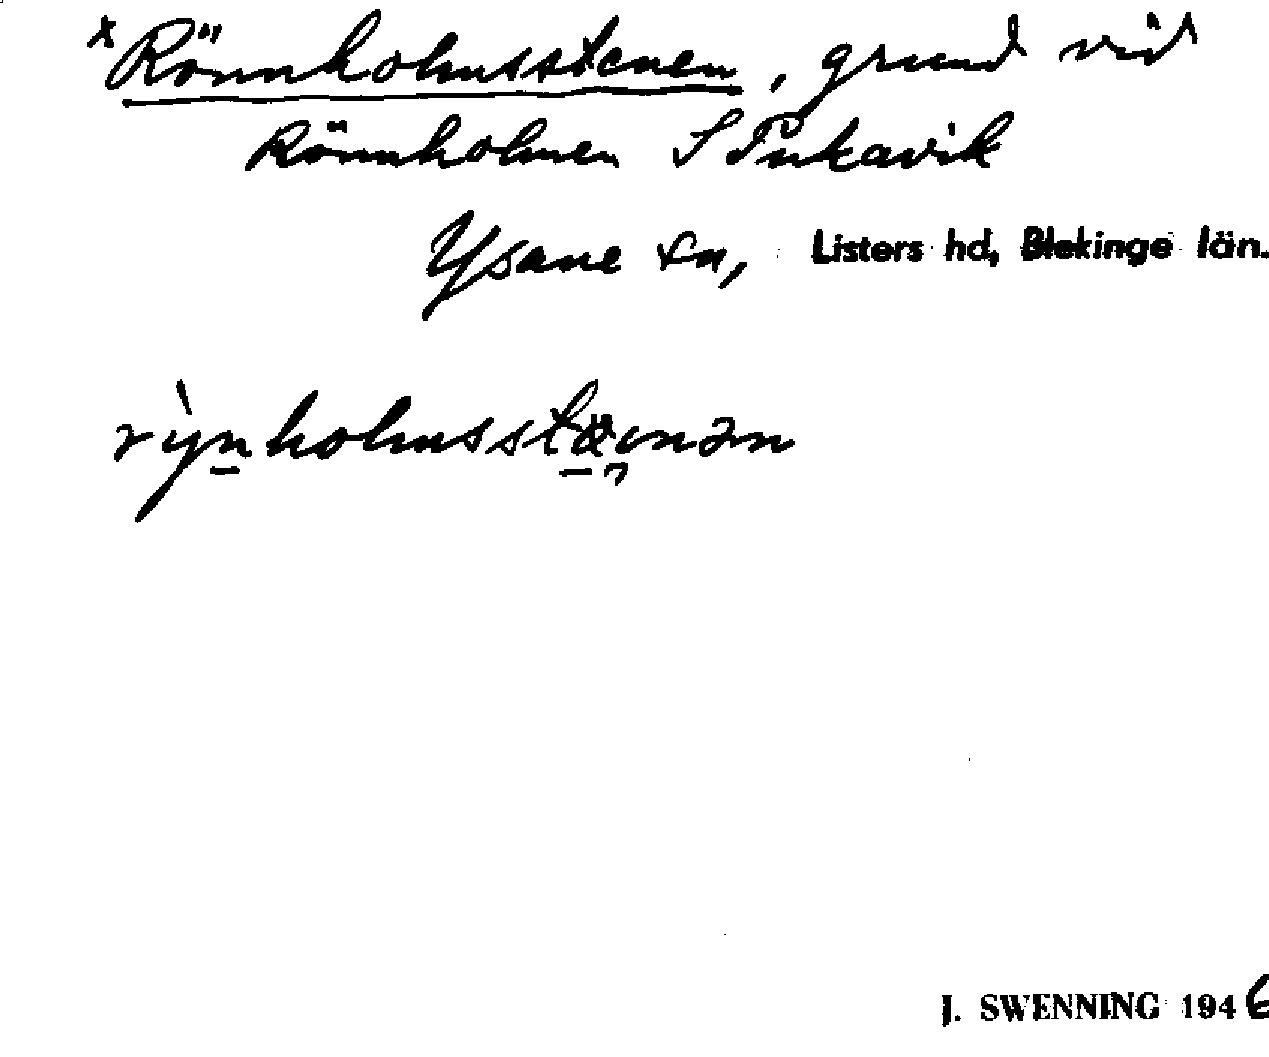 x Rönnholmsstenen, grund vid
Rönnholmen S Pukavik
Ysane sn, Listers hd, Blekinge län.
J. SWENNING 1946